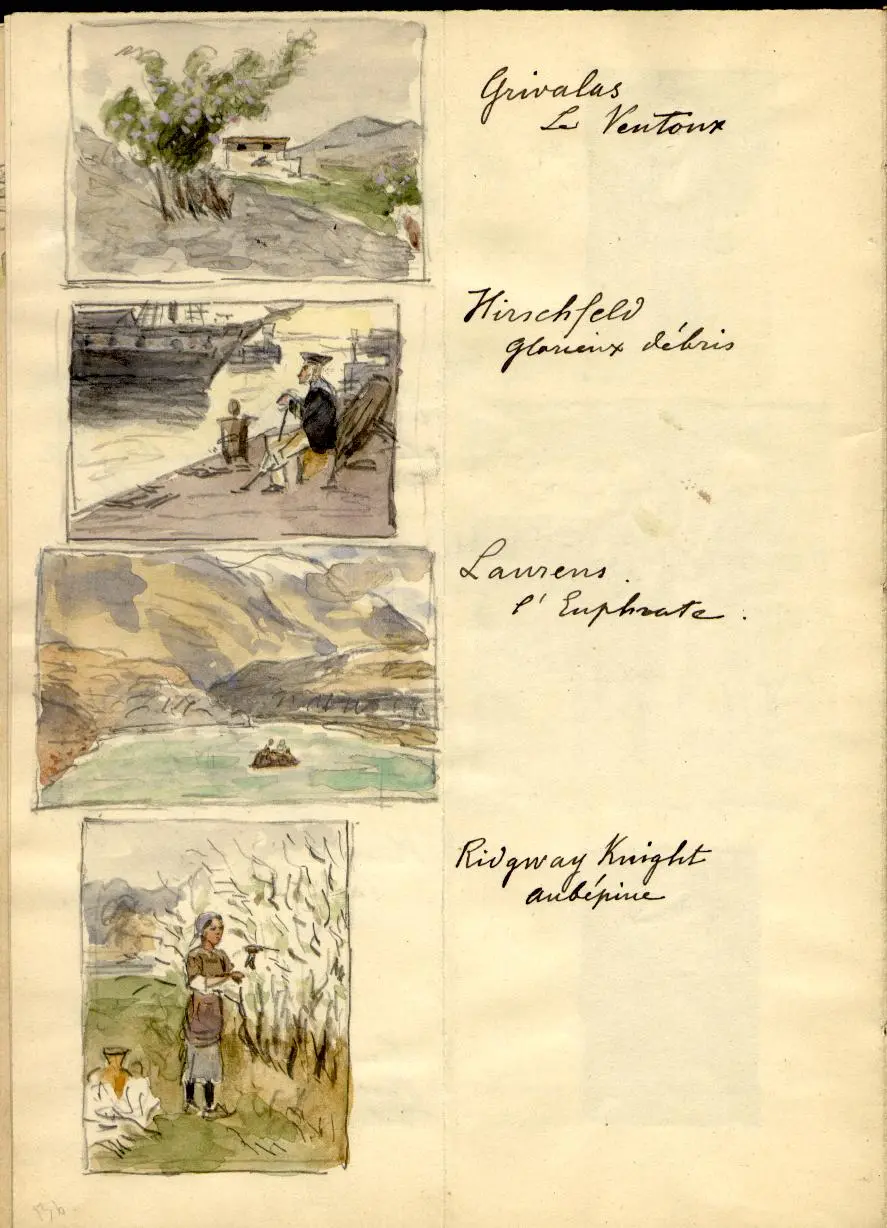 Grivolas
Le Ventoux
Hirschfeld
glorieux débris
Laurens.
l'Euphrate.
Ridgway Knight
aubépine